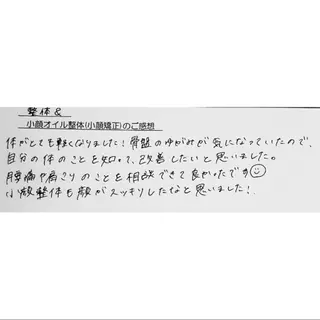 整体&
小顔オイル整体(小顔矯正)のご感想
体がとても軽くなりました!骨盤のゆがみが気になっていたので、
自分の体のことを知って、改善したいと思いました。
腰痛や肩こりのことを相談できて良かったです☺
小顔整体も顔がスッキリしたなと思いました!